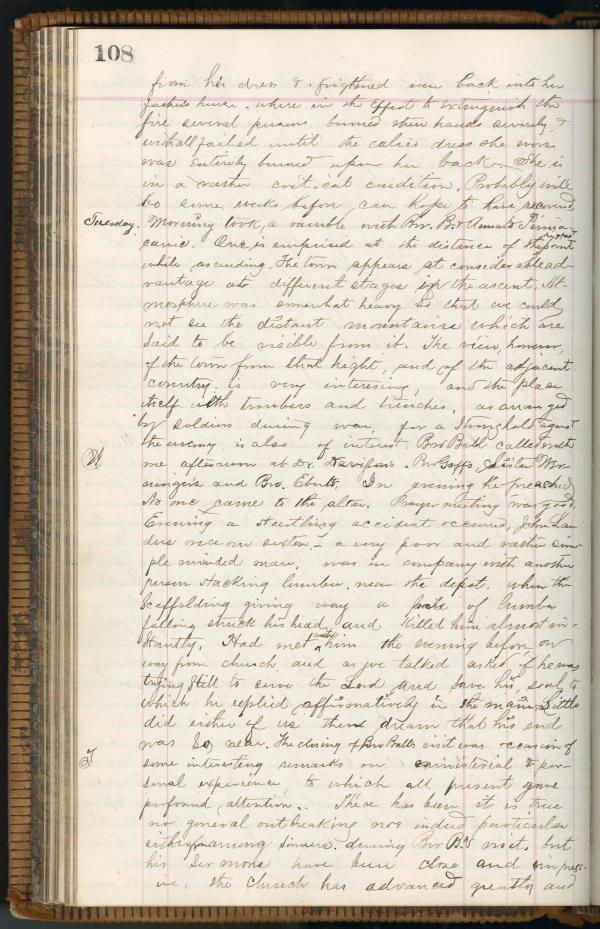 108
from her dress & frightened ran back into her
father's house. where in the Effort to Extinguish the
fire several persons burned their hands severely, &
withall failed until the calico dress she wore
was Entirely burned upon her back. She is
in a rather critical condition. Probably will
be some weeks before can hope to have recovered
Tuesday. Morning took a ramble with Bro.
one. One is surprised at the distance of the point
while ascending. The town appears at considerable ad-
vantage at different stages in the ascent. At-
mosphere was somewhat heavy so that we could
not see the distant mountains which are
said to be visible from it. The view, however,
of the town from that height, and of the adjacent
country is very interesing, and the place
itself with timbers and trenches, as arranged
by soldiers during war, for a stronghold against
the enemy is also of interest. Bro Balk called with
W me afternoon at Dr. Davison's. Bro Goffs, Sister
and Bro. Eberts. In evening he preached
No one came to the altar. Prayer meeting was good.
Evening a startling accident occurred, John Lan
dus once our sexton - a very poor and rather sim-
ple minded man, was in company with another
person stacking lumber, near the depot, when the
scaffolding giving way a pile of lumber
falling struck his head, and killed him almost in-
stantly. Had met with him the evening before on
way from church, and as we talked asked if he was
trying still to serve the Lord and save his soul, to
which he replied affirmatively in the main. Little
did either of us then dream that his end
was so near. The closing of Bro Balks visit was occasion of
T some interesting remarks on ministerial & per-
sonal experience, to which all present gave
profound attention. There has been it is true
no general outbreaking nor indeed particular
among sinners. during Bro B.'s visit, but
his sermons have been close and impress-
ive, the church has advanced greatly and